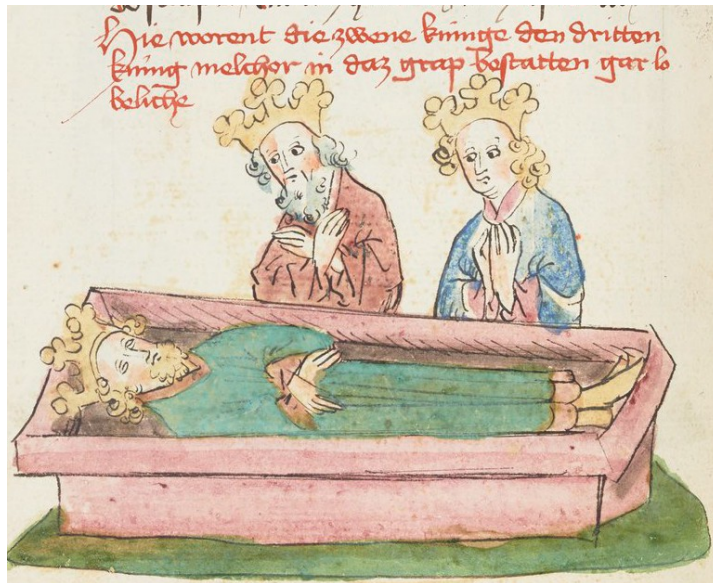 Hie worent die zwene kunige den dritten
kunig melchor in daz grap bestatten gar lo
beliche